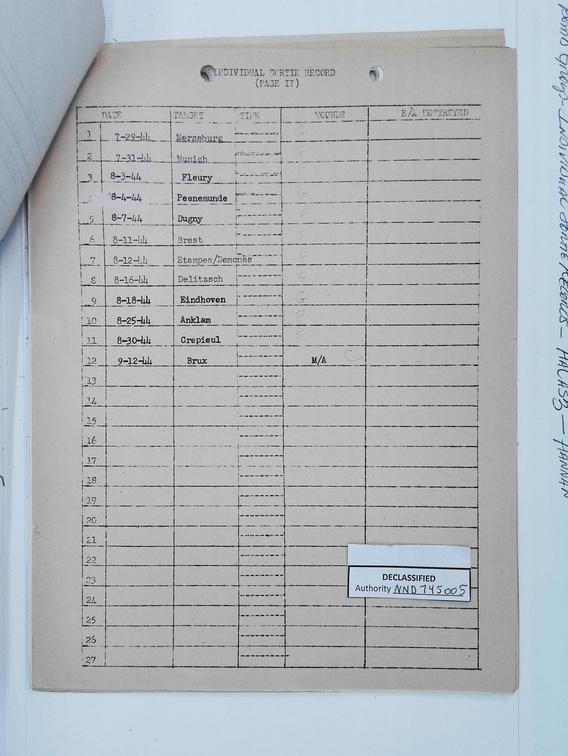 INDIVIDUAL SORTIE RECORD
(PAGE II)
DATE TARGET TIME WOUNDS E/A DESTROYED
1 7-29-44 Merseburg
2 7-31-44 Munich
3 8-3-44 Fleury
4 8-4-44 Peenemunde
5 8-7-44 Dugny
6 8-11-44 Brest
7 8-12-44 Etampes/Demones
8 8-16-44 Delitzsch
9 8-18-44 Eindhoven G
10 8-25-44 Anklam
11 8-30-44 Crepieul
12 9-12-44 Brux M/A
13
14
15
16
17
18
19
20
21
22
23
24
25
26
27
DECLASSIFIED
Authority NND 745005
Individual Sortie Records - HALASZ - HANNAN